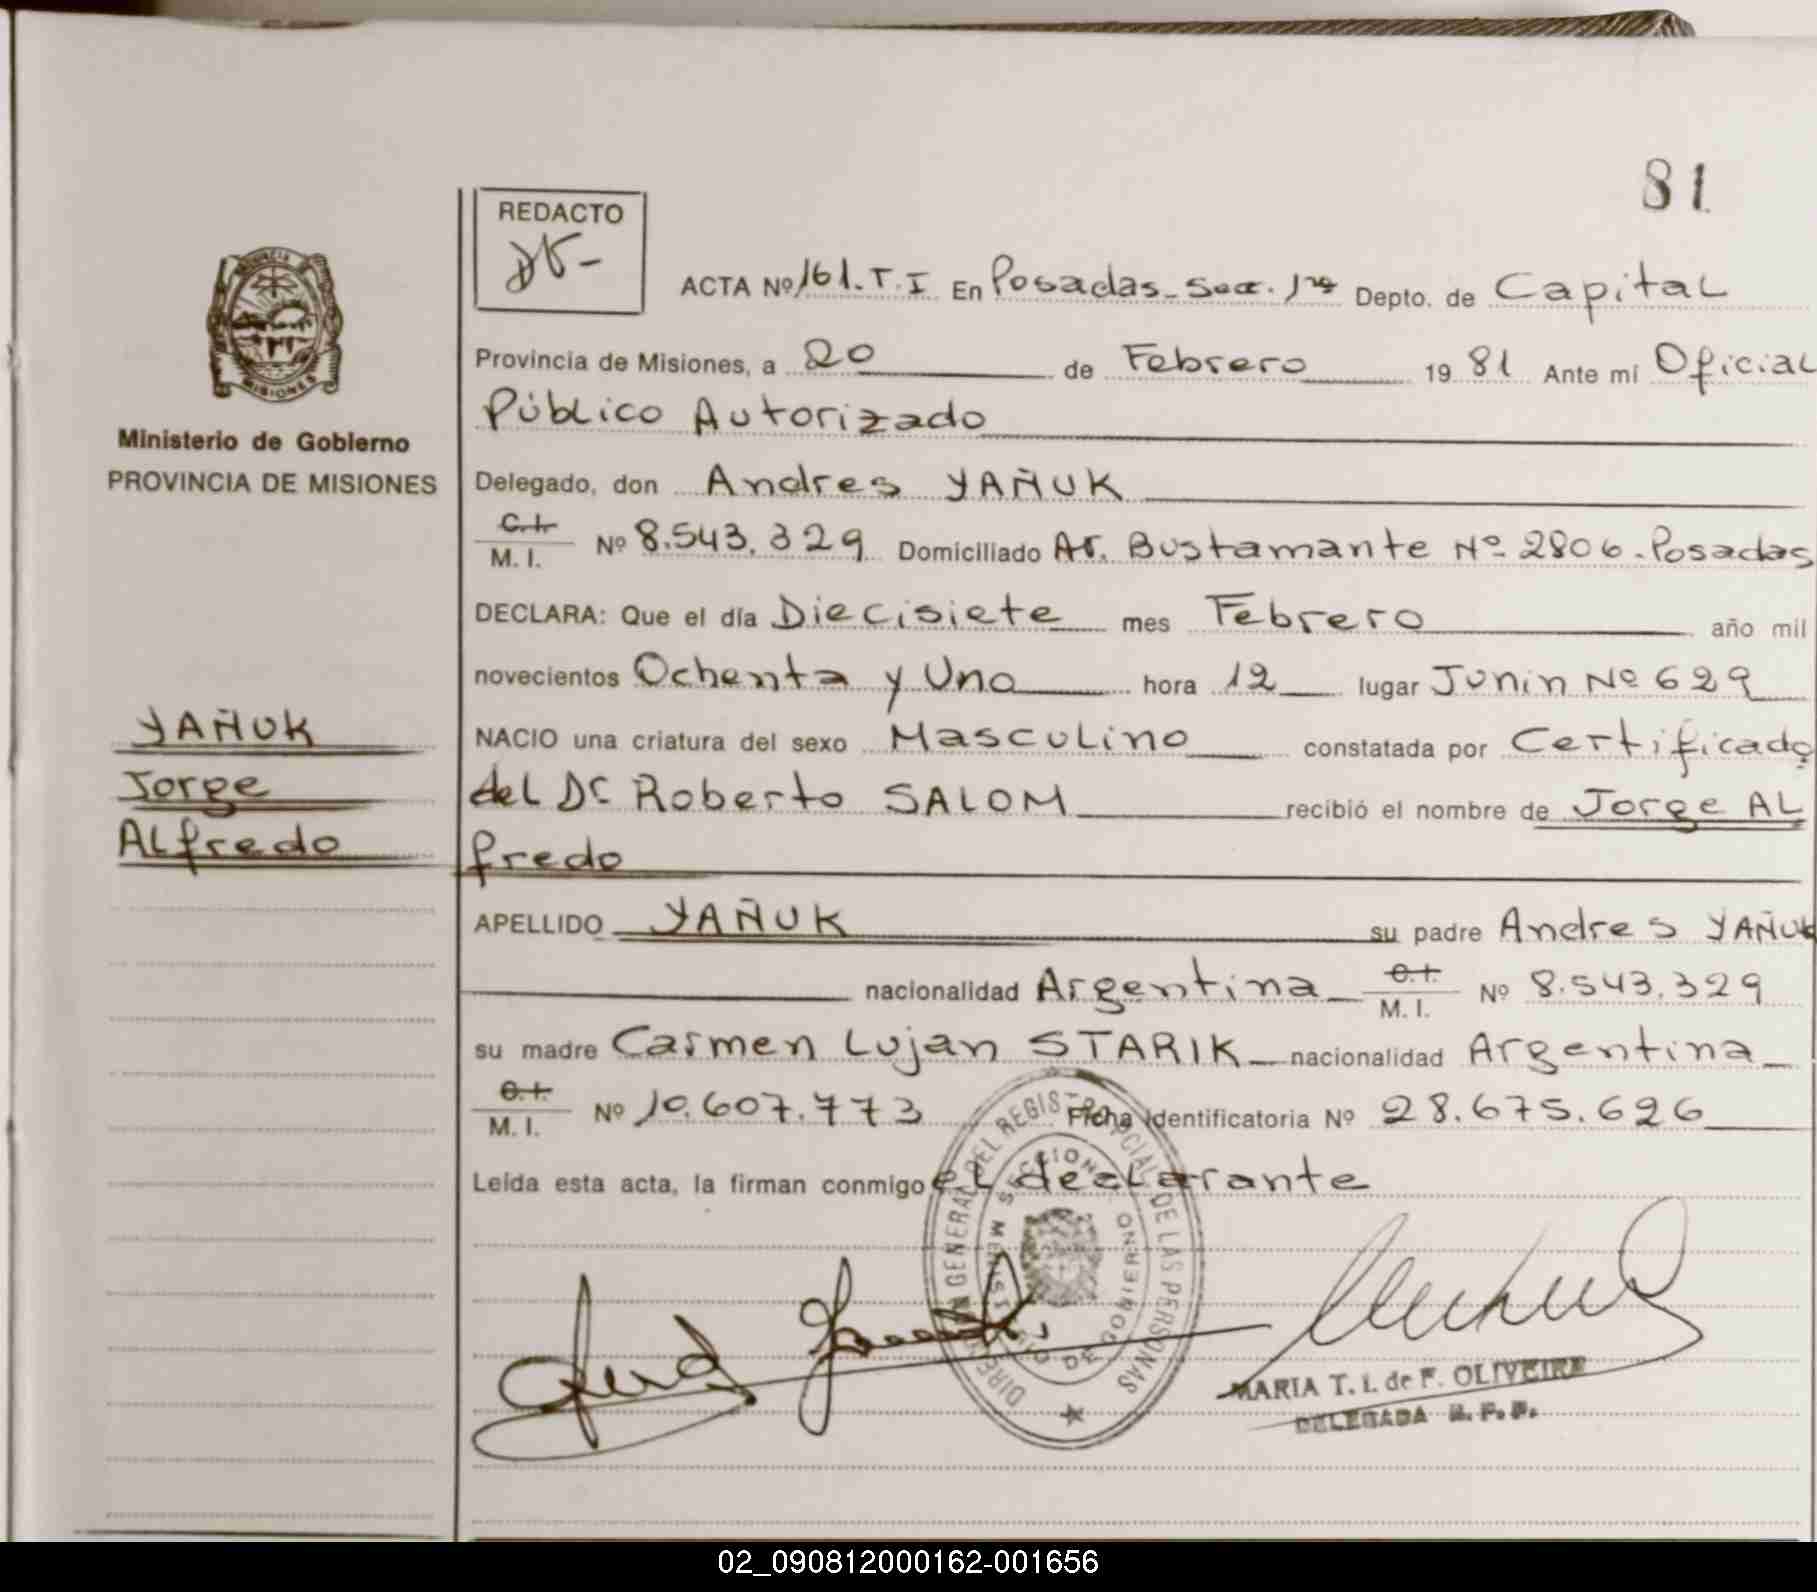 81
REDACTO
ACTA Nº 161.T.I En Posadas-Secc. 1ra Depto. de Capital
Provincia de Misiones, a 20 de Febrero 1981 Ante mí Oficial
Público Autorizado
Ministerio de Gobierno
PROVINCIA DE MISIONES
Delegado, don Andres YAÑUK
C.I.
M. I. Nº 8.543.329 Domiciliado Av. Bustamante Nº 2806-Posadas
DECLARA: Que el día Diecisiete mes Febrero año mil
novecientos Ochenta y Uno hora 12 lugar Junin Nº 629
YAÑUK
Jorge
Alfredo
NACIO una criatura del sexo Masculino constatada por Certificado
del Dr Roberto SALOM recibió el nombre de Jorge AL
fredo
APELLIDO YAÑUK su padre Andres YAÑUK
nacionalidad Argentina C.I. M. I. Nº 8.543.329
su madre Carmen Lujan STARIK nacionalidad Argentina
C.I.
M. I. Nº 10.607.773 Ficha Identificatoria Nº 28.675.626
Leída esta acta, la firman conmigo el declarante
MARIA T. I. de F. OLIVEIRA
DELEGADA R. P. P.
02_090812000162-001656